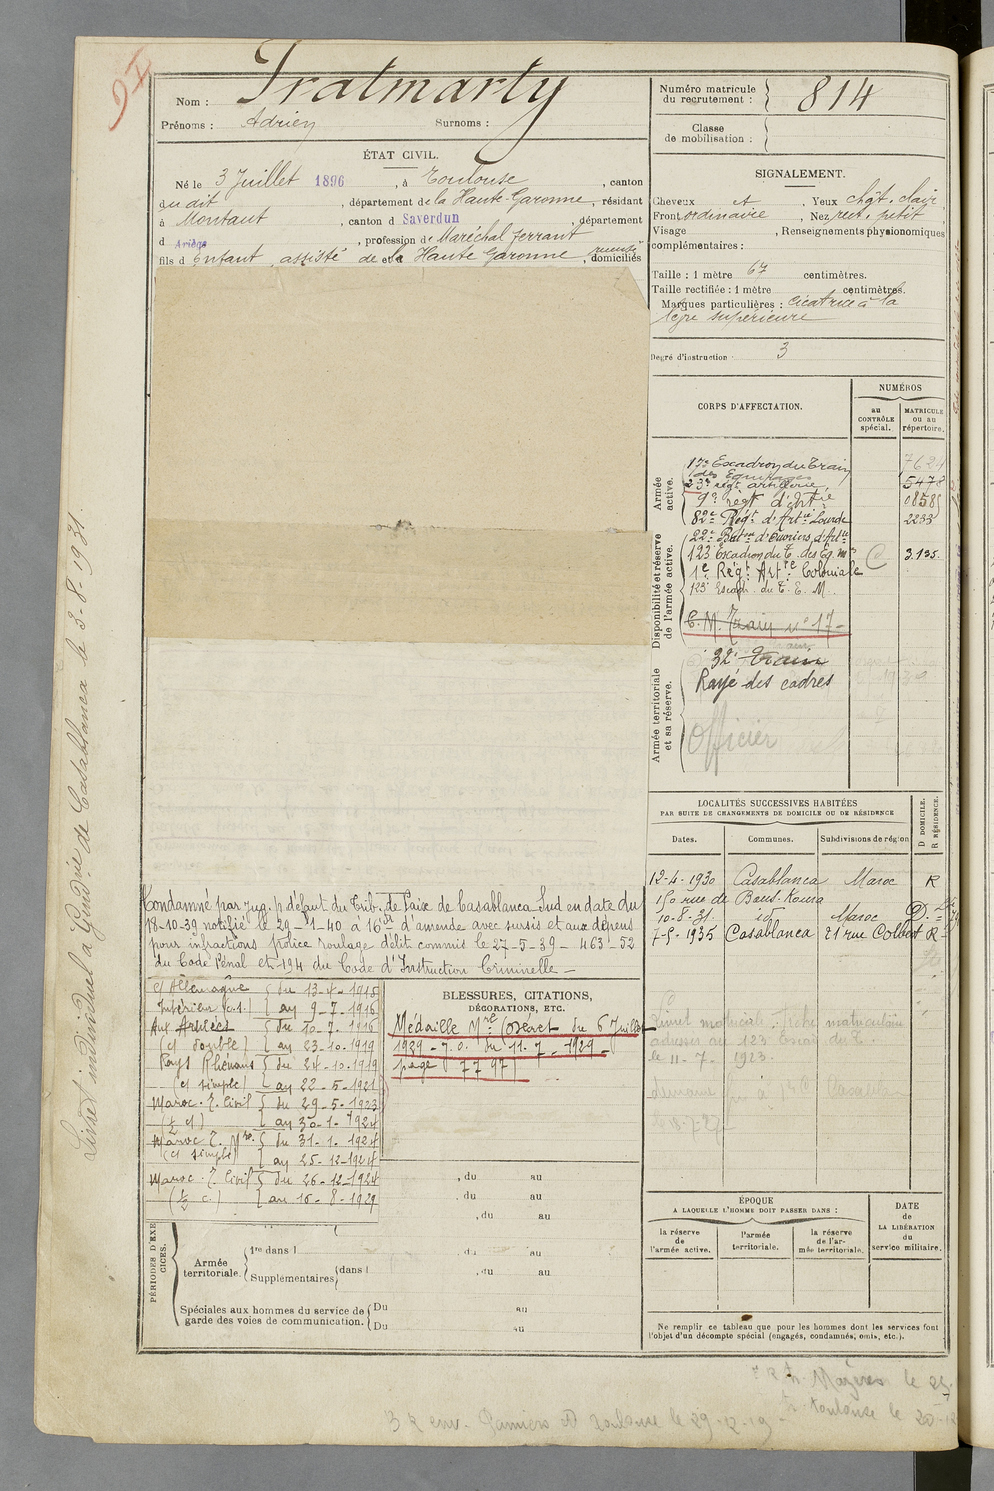 Nom : Pratmarty
Prénoms : Adrien Surnoms :
Numéro matricule du recrutement : 814
Classe de mobilisation :
ÉTAT CIVIL.
Né le 3 Juillet 1896, à Toulouse, canton
du dit, département de la Haute-Garonne, résidant
à Montaut, canton d Saverdun, département
d Ariège, profession de Maréchal ferrant
fils d Enfant assisté de et d la Haute Garonne, domiciliés
SIGNALEMENT.
Cheveux ct. Yeux chât. clair,
Front ordinaire. Nez rect. petit
Visage , Renseignements physionomiques
complémentaires :
Taille : 1 mètre 67 centimètres.
Taille rectifiée : 1 mètre centimètres.
Marques particulières : cicatrice à la
lèvre supérieure
Degré d'instruction : 3
CORPS D'AFFECTATION.
NUMÉROS
au CONTRÔLE spécial.
MATRICULE ou au répertoire.
Armée active.
17e Escadron du Train
des Equipages
23e régt artillerie 5478
9e règt d'Artie 0858
82e Régt d'Artie Lourde 2233
Disponibilité et réserve de l'armée active.
22e Baton d'Ouvriers d'Artie
123 Escadron du T. des Eq. mres C 3.135.
1e Régt Artie Coloniale
123 Escadr. du T. E. M.
C. M. Train no 17
Armée territoriale et sa réserve.
32e Train
Rayé des cadres
Officier
LOCALITÉS SUCCESSIVES HABITÉES
PAR SUITE DE CHANGEMENTS DE DOMICILE OU DE RÉSIDENCE
Dates. Communes. Subdivisions de région D DOMICILE. R RÉSIDENCE.
12-4-1930 Casablanca Maroc R
150 rue de
10-8-31. id Maroc D.
7-5-1935 Casablanca 21 rue Colbert R
Condamné par jug. p défaut du Trib. de Paix de Casablanca Sud en date du
13-10-39 notifié le 29-1-40 à 16 d'amende avec sursis et aux dépens
pour infractions police roulage délit commis le 27-5-39 - 463-52
du Code Pénal et 194 du Code d'Instruction Criminelle -
c/ Allemagne du 13-4-1915
Intérieur (c.s.) au 9-7-1916
Aux Armées du 10-7-1916
(c/ double) au 23-10-1919
Pays Rhénans du 24-10-1919
(c/ simple) au 22-5-1921
Maroc. T. Civil du 29-5-1923
(½ c/) au 30-1-1924
Maroc T. Mre. du 31-1-1924
(c/ simple) au 25-12-1924
Maroc. T. Civil du 26-12-1924
(½ c.) au 16-8-1929
BLESSURES, CITATIONS,
DÉCORATIONS, ETC.
Médaille Mre (Décret du 6 Juillet
1929 - J.O. du 11-7-1929
page 7797)
, du au
, du au
, du au
PÉRIODES D'EXERCICES.
Armée territoriale.
1re dans l , du au
Supplémentaires dans l , du au
Spéciales aux hommes du service de garde des voies de communication.
Du au
Du au
Livret matricule. Fiche matriculaire
adressés au 123 Escon du T.
le 11-7-1923.
ÉPOQUE
A LAQUELLE L'HOMME DOIT PASSER DANS :
la réserve de l'armée active.
l'armée territoriale.
la réserve de l'armée territoriale.
DATE de LA LIBÉRATION du service militaire.
Ne remplir ce tableau que pour les hommes dont les services font
l'objet d'un décompte spécial (engagés, condamnés, omis, etc.).
Livret individuel à Gendrie de Casablanca le 3-8-1931.
Mazères le
Toulouse le
3 R env. Pamiers à Toulouse le 29-12-19